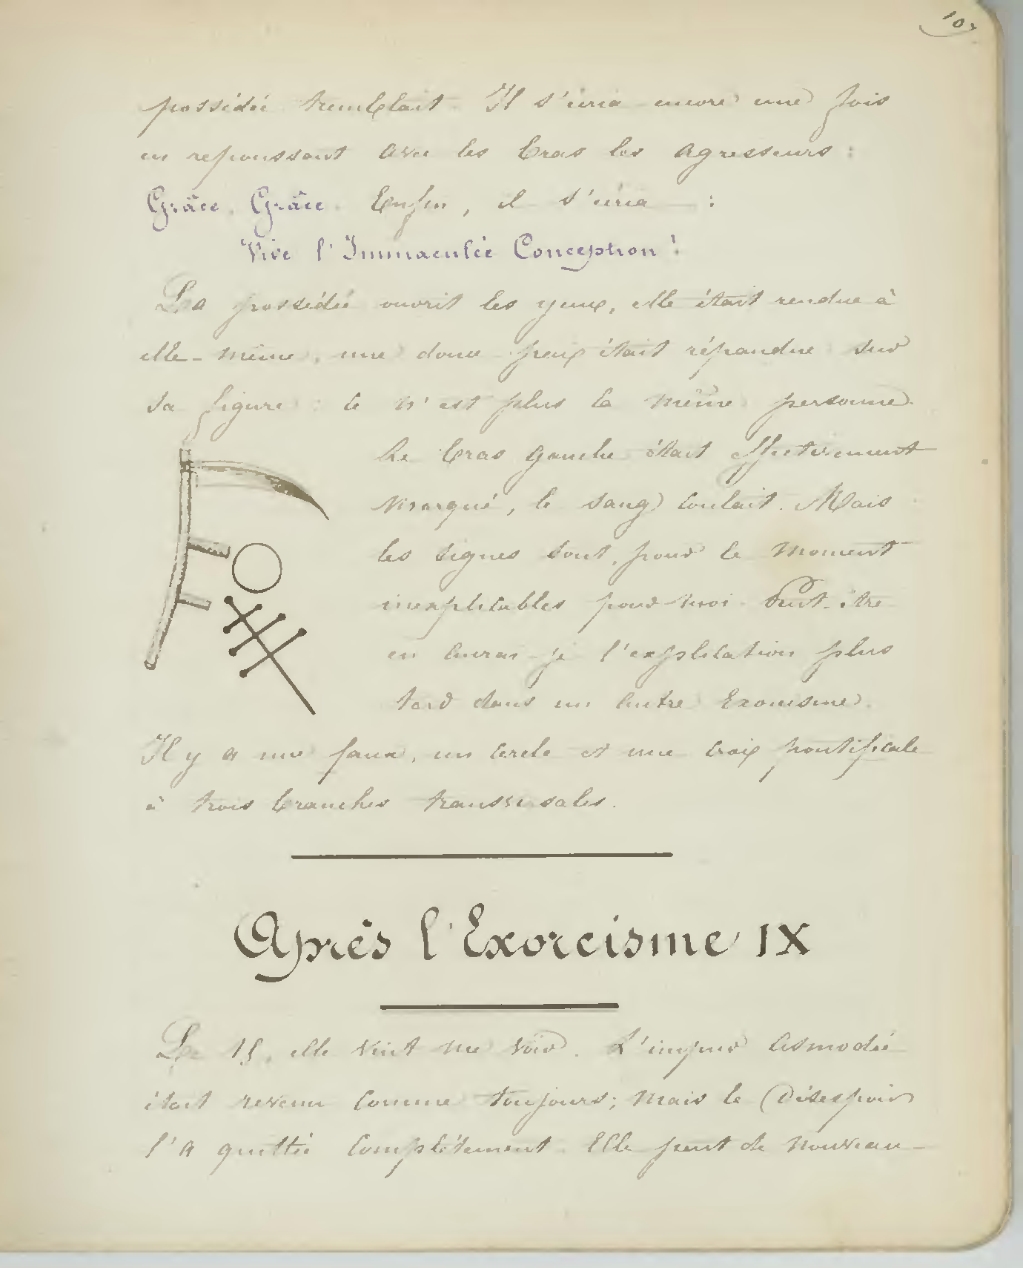 107
possédée tremblait. Il s'écria encore une fois
en repoussant avec les bras les agresseurs :
Grâce, Grâce. Enfin, il s'écria :
Vive l'Immaculée Conception !
La possédée ouvrit les yeux, elle était rendue à
elle-même, une douce paix était répandue sur
sa figure : ce n'est plus la même personne.
Le bras gauche était effectivement
marqué, le sang coulait. Mais
les signes sont, pour le moment
inexplicables pour moi. Peut-être
en aurai-je l'explication plus
tard dans un autre Exorcisme.
Il y a une faux, un cercle et une croix pontificale
à trois branches transversales.
Après l'Exorcisme IX
Le 15, elle vint me voir. L'impur Asmodée
était revenu comme toujours; mais le Désespoir
l'a quittée complètement. Elle peut de nouveau